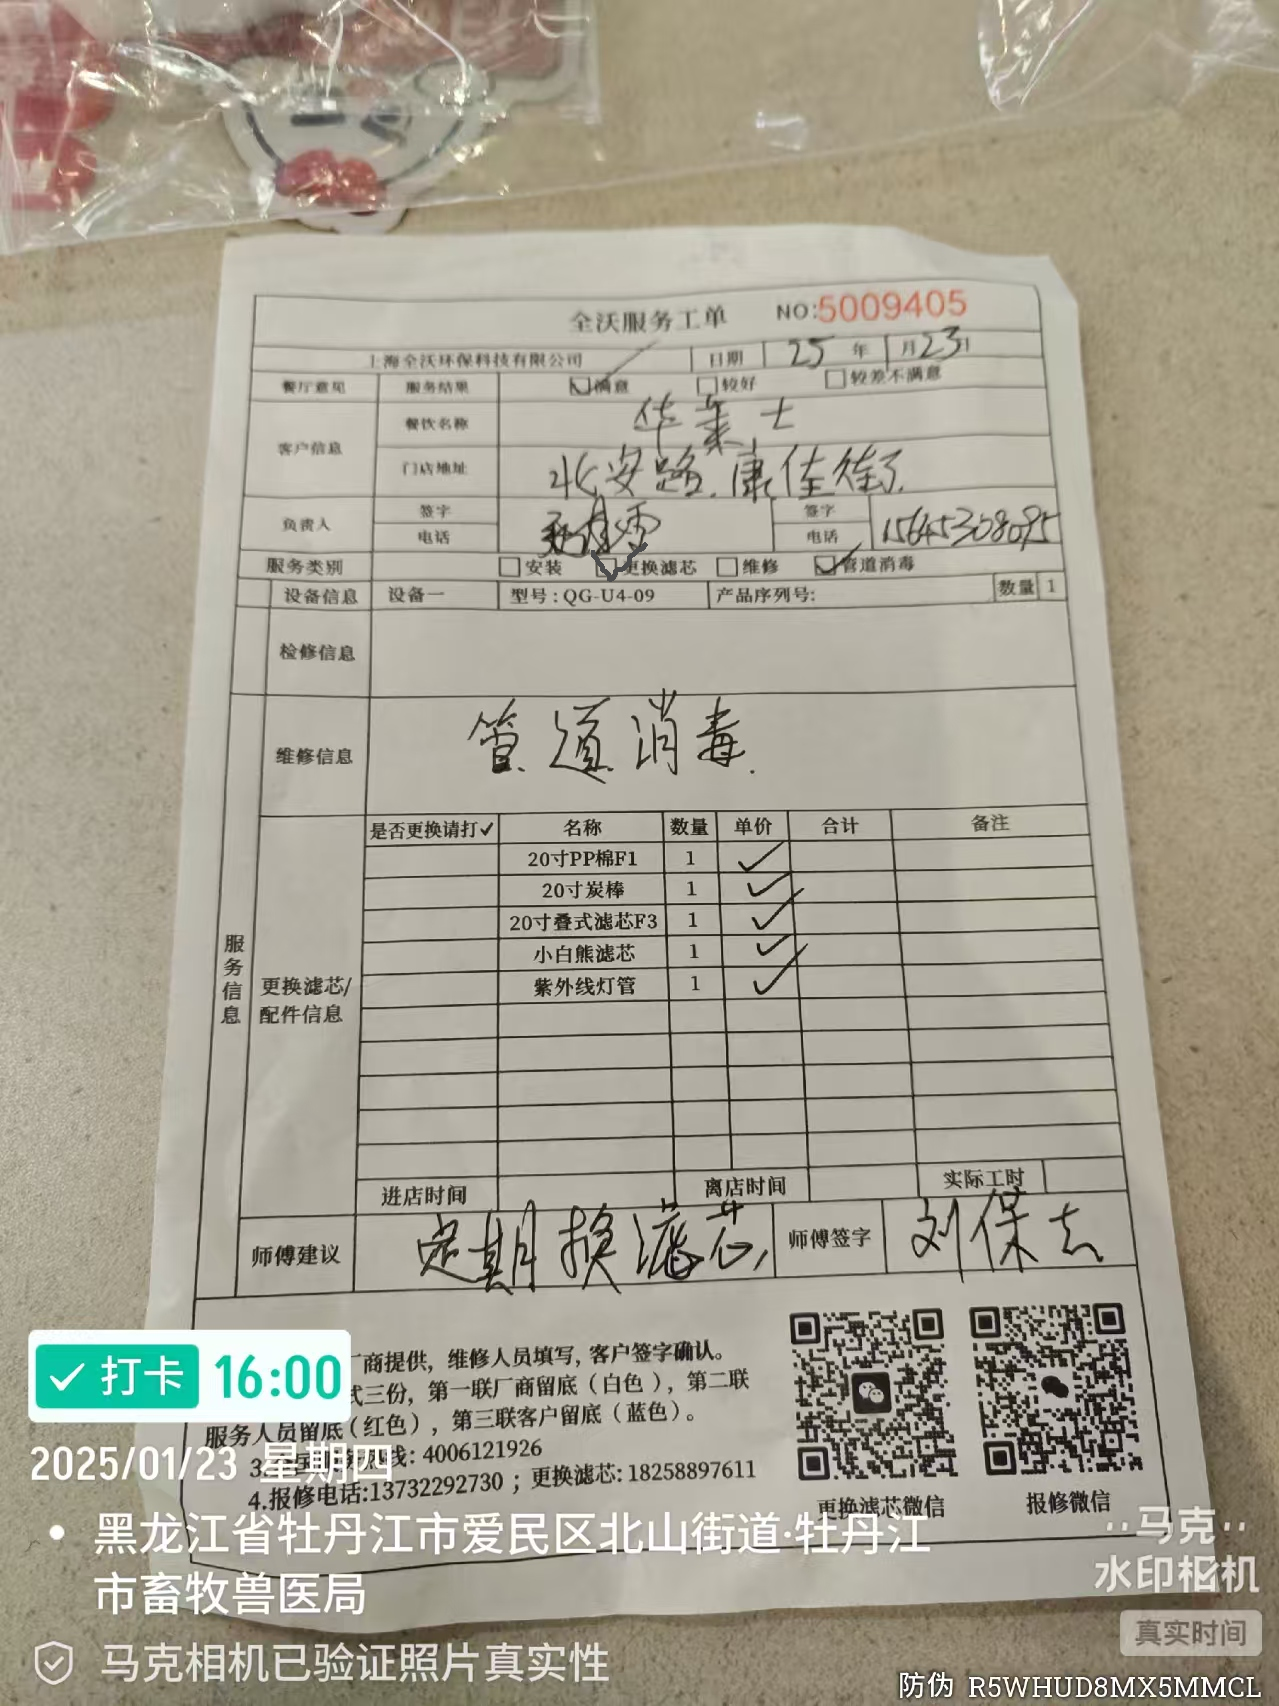 全沃服务工单 NO:5009405
上海全沃环保科技有限公司 日期 25 年 1 月 23 日
餐厅意见 服务结果 满意 较好 较差不满意
客户信息 餐饮名称 华莱士
门店地址 北安路.康佳街
负责人 签字 电话 签字 电话 15645308095
服务类别 安装 更换滤芯 维修 管道消毒
设备信息 设备一 型号:QG-U4-09 产品序列号: 数量 1
检修信息
维修信息 管道消毒.
服务信息
更换滤芯/配件信息
是否更换请打✓ 名称 数量 单价 合计 备注
20寸PP棉F1 1 ✓
20寸炭棒 1 ✓
20寸叠式滤芯F3 1 ✓
小白熊滤芯 1 ✓
紫外线灯管 1 ✓
进店时间 离店时间 实际工时
师傅建议 定期换滤芯, 师傅签字 刘保志
厂商提供，维修人员填写，客户签字确认。
式三份，第一联厂商留底（白色），第二联
服务人员留底（红色），第三联客户留底（蓝色）。
3. 线: 4006121926
4.报修电话:13732292730；更换滤芯: 18258897611
更换滤芯微信 报修微信
打卡 16:00
2025/01/23 星期四
黑龙江省牡丹江市爱民区北山街道·牡丹江
市畜牧兽医局
马克相机已验证照片真实性
马克
水印相机
真实时间
防伪 R5WHUD8MX5MMCL